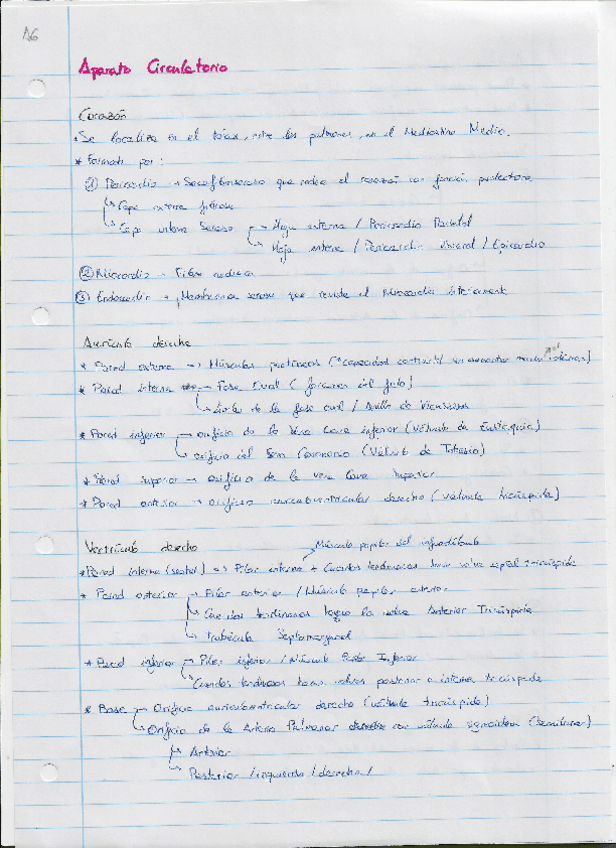 A6
Aparato Circulatorio
Corazón
• Se localiza en el tórax, entre los pulmones, en el Mediastino Medio.
* Formado por:
① Pericardio → Saco fibroseroso que rodea el corazón con función protectora
↳ Capa externa fibrosa
↳ Capa interna Serosa → Hoja externa / Pericardio Parietal
↳ Hoja interna / Pericardio Visceral / Epicardio
② Miocardio → Fibra
③ Endocardio → Membrana serosa que reviste el Miocardio interiormente
Aurícula derecha
* Pared externa → Músculos pectíneos (↑ capacidad contráctil sin aumentar
* Pared interna → Fosa Oval (foramen del feto)
↳ de la fosa oval / Anillo de Vieussens
* Pared inferior → orificio de la Vena Cava inferior (Válvula de Eustaquio)
↳ orificio del Seno Coronario (Válvula de Tebesio)
* Pared superior → orificio de la vena Cava Superior
* Pared anterior → orificio auriculoventricular derecho (válvula tricúspide)
Ventrículo derecho
Músculo papilar del infundíbulo
* Pared interna (septal) → Pilar interno + Cuerdas tendinosas valva septal tricúspide
* Pared anterior → Pilar anterior / Músculo papilar anterior
↳ Cuerdas tendinosas la valva Anterior Tricúspide
↳ Trabécula Septomarginal
* Pared inferior → Pilar inferior / Músculo Inferior
↳ Cuerdas tendinosas valvas posterior e interna tricúspide
* Base → Orificio auriculoventricular derecho (válvula tricúspide)
↳ Orificio de la Arteria Pulmonar con válvula sigmoidea (semilunar)
↳ Anterior
↳ Posterior / izquierda / derecha /